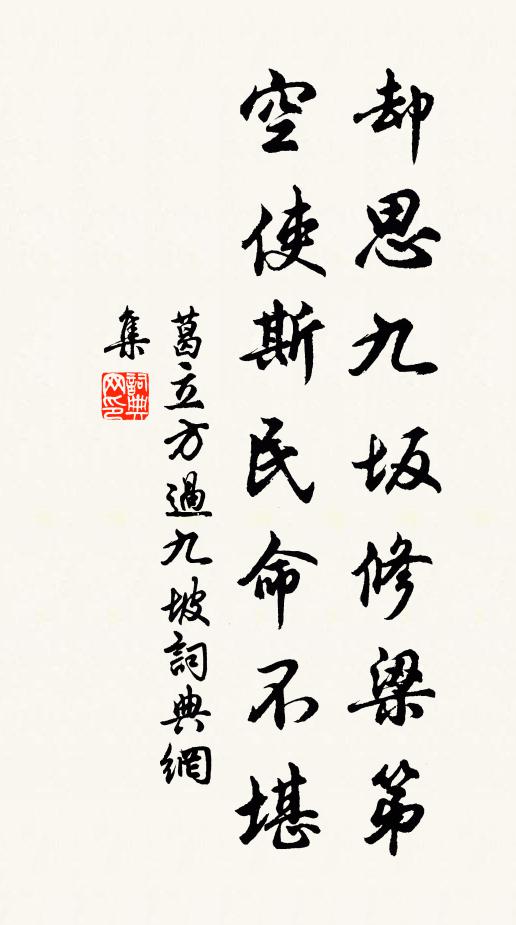 却思九坂修梁第
空使斯民命不堪
葛立方過九坡詞典網
集
詞典
网印